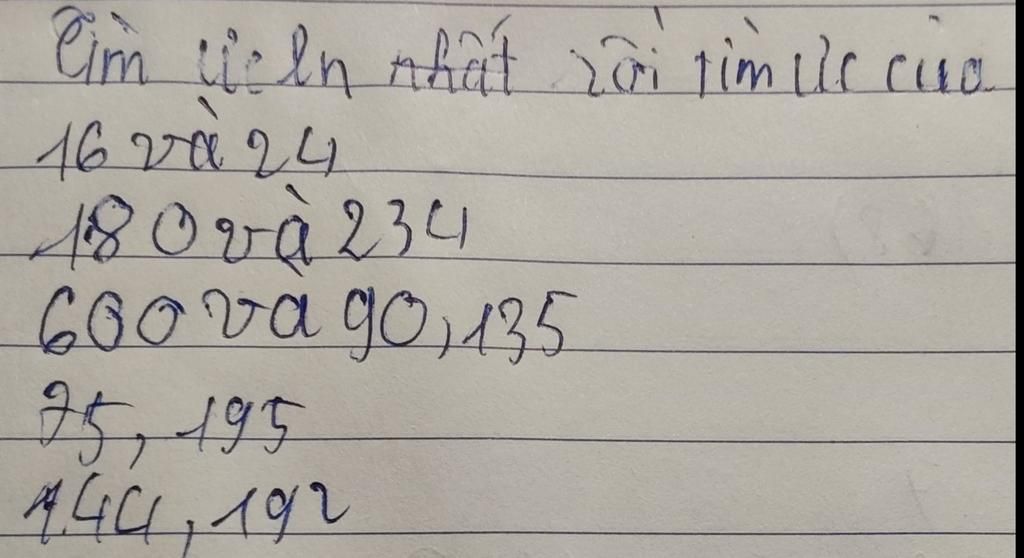 Tìm ưc ln nhất rồi tìm ưc của
16 và 24
180 và 234
600 va 90, 135
75, 195
144, 192